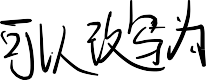 可以改写为